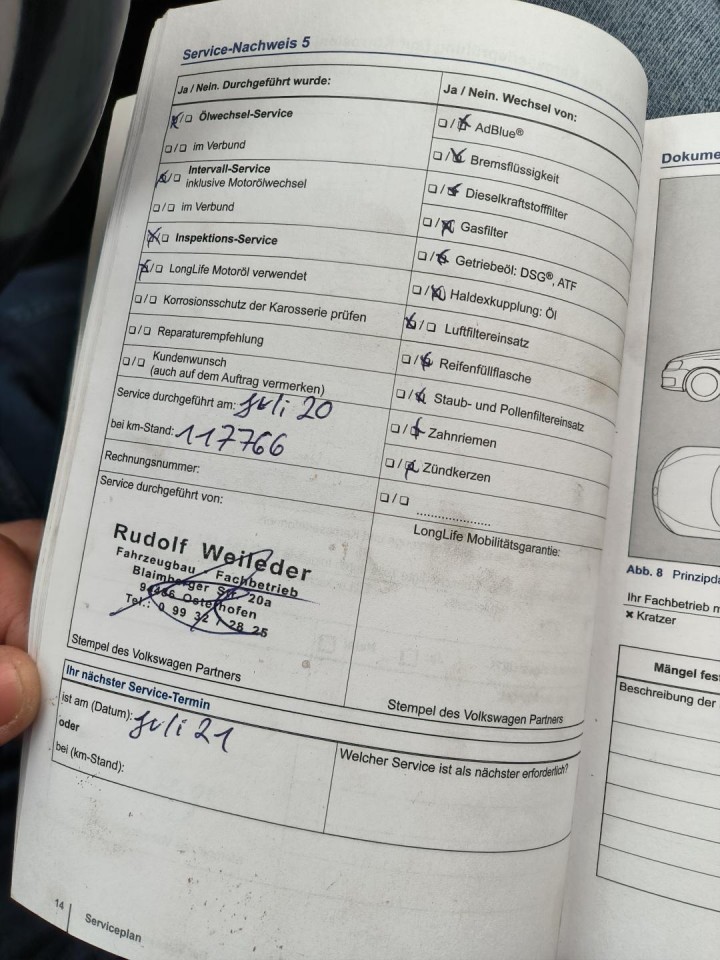 Service-Nachweis 5
Ja / Nein. Durchgeführt wurde:
Ölwechsel-Service
im Verbund
Intervall-Service
inklusive Motorölwechsel
im Verbund
Inspektions-Service
LongLife Motoröl verwendet
Korrosionsschutz der Karosserie prüfen
Reparaturempfehlung
Kundenwunsch
(auch auf dem Auftrag vermerken)
Service durchgeführt am: Juli 20
bei km-Stand: 117766
Rechnungsnummer:
Service durchgeführt von:
Rudolf Weileder
Fahrzeugbau - Fachbetrieb
Blaimberger Str. 20a
94486 Osterhofen
Tel.: 0 99 32 / 28 25
Stempel des Volkswagen Partners
Ja / Nein. Wechsel von:
AdBlue®
Bremsflüssigkeit
Dieselkraftstofffilter
Gasfilter
Getriebeöl: DSG®, ATF
Haldexkupplung: Öl
Luftfiltereinsatz
Reifenfüllflasche
Staub- und Pollenfiltereinsatz
Zahnriemen
Zündkerzen
LongLife Mobilitätsgarantie:
Stempel des Volkswagen Partners
Ihr nächster Service-Termin
ist am (Datum): Juli 21
oder
bei (km-Stand):
Welcher Service ist als nächster erforderlich?
14
Serviceplan
Dokume
Abb. 8 Prinzipda
Ihr Fachbetrieb m
× Kratzer
Mängel fes
Beschreibung der